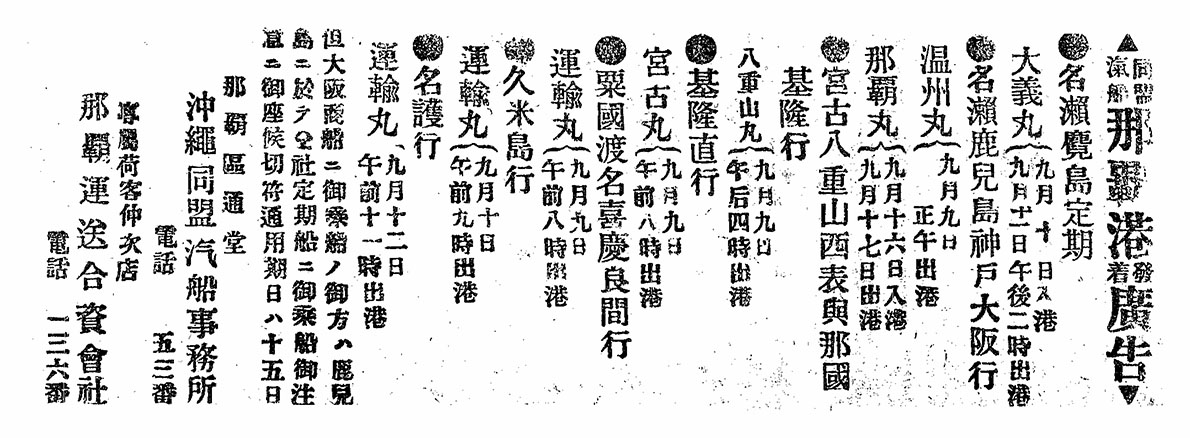 ▲同盟汽船那覇港發着廣告▼
●名瀨鹿兒島定期
大義丸 九月十日入港
九月十一日午後二時出港
●名瀨鹿兒島神戸大阪行
温州丸 九月九日正午出港
那覇丸 九月十六日入港
九月十七日出港
●宮古八重山西表與那國
基隆行
八重山丸 九月九日
午后四時出港
●基隆直行
宮古丸 九月九日
午前八時出港
●粟國渡名喜慶良間行
運輸丸 九月九日
午前八時出港
●久米島行
運輸丸 九月十日
午前九時出港
●名護行
運輸丸 九月十二日
午前十一時出港
但大阪商船ニ御乘船ノ御方ハ鹿兒
島ニ於テ仝社定期船ニ御乘船御注
意ニ御座候切符通用期日ハ十五日
那覇區通堂
沖繩同盟汽船事務所
電話 五三番
專屬荷客仲次店
那覇運送合資會社
電話 一三六番